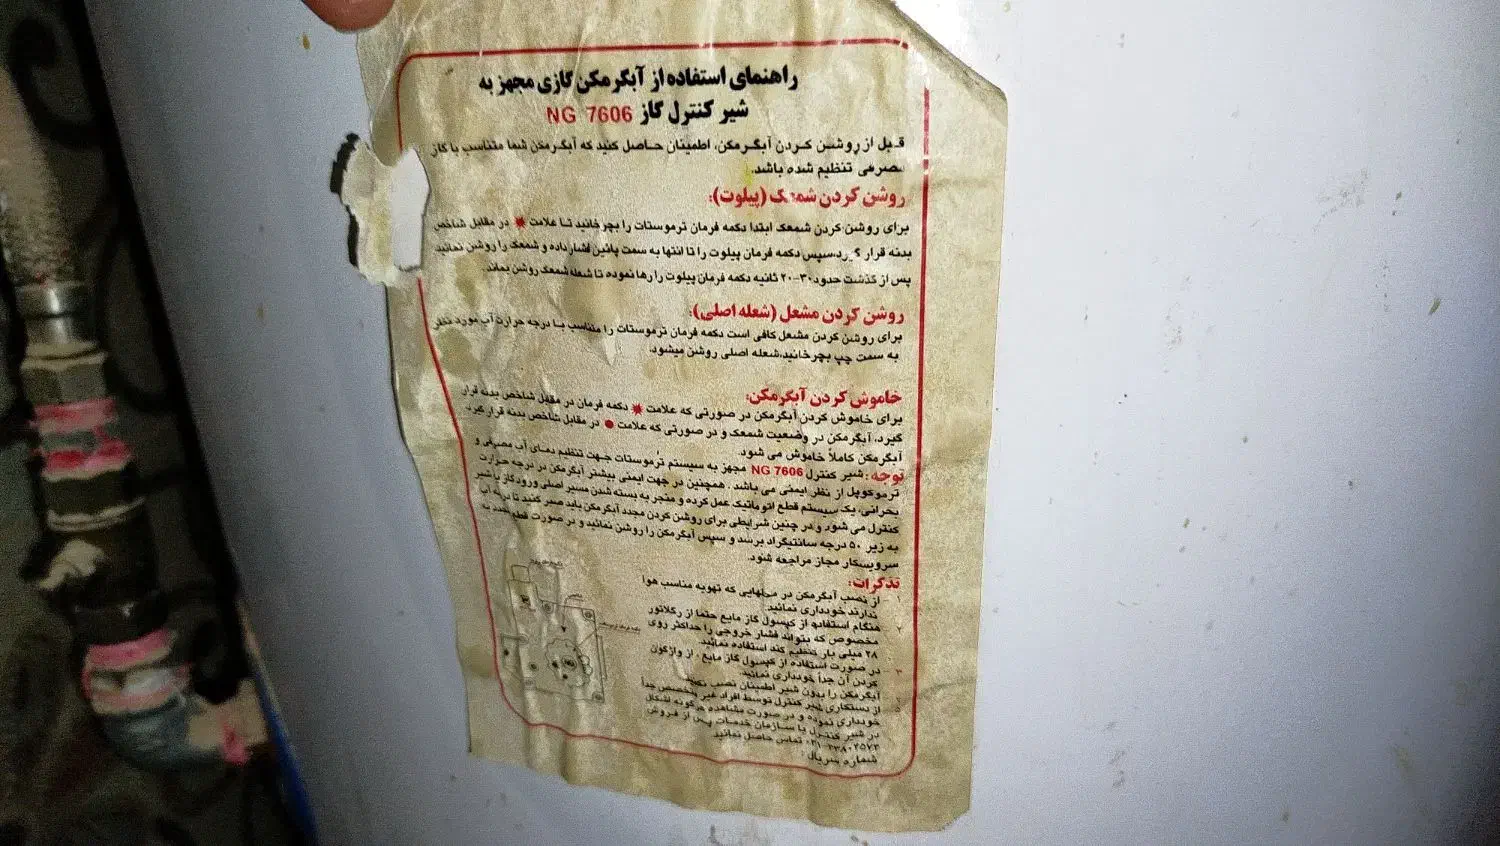 راهنمای استفاده از آبگرمکن گازی مجهز به
شیر کنترل گاز NG 7606
قبل از روشن کردن آبگرمکن، اطمینان حاصل کنید که آبگرمکن شما متناسب با گاز
مصرفی تنظیم شده باشد.
روشن کردن شمعک (پیلوت):
برای روشن کردن شمعک ابتدا دکمه فرمان ترموستات را بچرخانید تا علامت در مقابل شاخص
بدنه قرار گیرد،سپس دکمه فرمان پیلوت را تا انتها به سمت پائین فشار داده و شمعک را روشن نمائید
پس از گذشت حدود ۳۰-۲۰ ثانیه دکمه فرمان پیلوت را رها نموده تا شعله شمعک روشن بماند.
روشن کردن مشعل (شعله اصلی):
برای روشن کردن مشعل کافی است دکمه فرمان ترموستات را متناسب با درجه حرارت آب مورد نظر
به سمت چپ بچرخانید،شعله اصلی روشن میشود.
خاموش کردن آبگرمکن:
برای خاموش کردن آبگرمکن در صورتی که علامت دکمه فرمان در مقابل شاخص بدنه قرار
گیرد، آبگرمکن در وضعیت شمعک و در صورتی که علامت ● در مقابل شاخص بدنه قرار گیرد
آبگرمکن کاملاً خاموش می شود.
توجه: شیر کنترل NG 7606 مجهز به سیستم ترموستات جهت تنظیم دمای آب مصرفی و
ترموکوپل از نظر ایمنی می باشد. همچنین در جهت ایمنی بیشتر آبگرمکن در درجه حرارت
بحرانی، یک سیستم قطع اتوماتیک عمل کرده و منجر به بسته شدن مسیر اصلی ورود گاز با شیر
کنترل می شود و در چنین شرایطی برای روشن کردن مجدد آبگرمکن باید صبر کنید تا آب
به زیر ۵۰ درجه سانتیگراد برسد و سپس آبگرمکن را روشن نمائید و در صورت قطع مجدد به
سرویسکار مجاز مراجعه شود.
تذکرات:
۱- از نصب آبگرمکن در محلهایی که تهویه مناسب هوا
ندارند خودداری نمائید.
۲ هنگام استفاده از کپسول گاز مایع حتما از رگلاتور
مخصوص که بتواند فشار خروجی را حداکثر روی
۲۸ میلی بار تنظیم کند استفاده نمائید
۳ در صورت استفاده از کپسول گاز مایع، از واژگون
کردن آن جداً خودداری نمائید.
آبگرمکن را بدون شیر اطمینان نصب نکنید
۵ از دستکاری شیر کنترل توسط افراد غیر متخصص جداً
خودداری نموده و در صورت مشاهده هرگونه اشکال
در شیر کنترل با سازمان خدمات پس از فروش
تماس حاصل نمائید
شماره سریال: